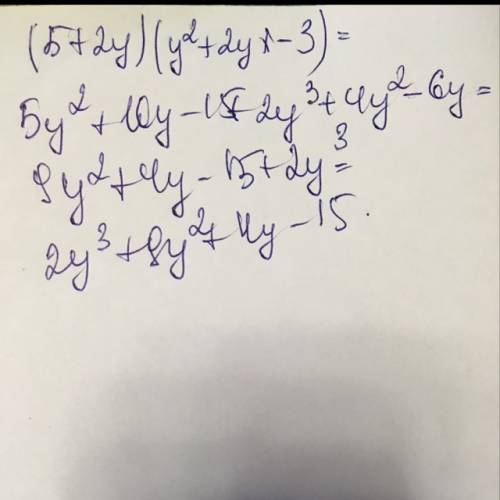 (5+2y)(y²+2y-3)=
5y²+10y-15+2y³+4y²-6y=
9y²+4y-15+2y³=
2y³+9y²+4y-15.